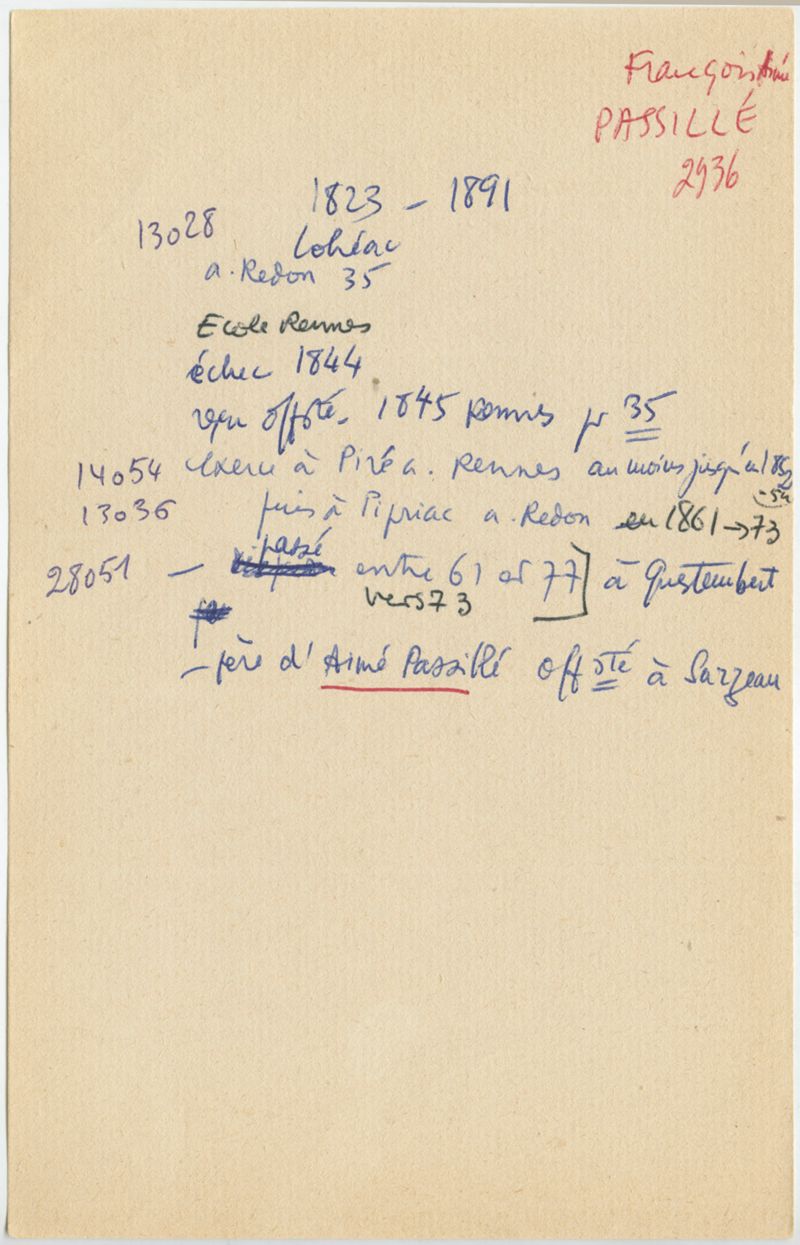 François Aimé
PASSILLÉ
2936
1823 – 1891
13028 Lohéac
a. Redon 35
Ecole Rennes
échec 1844
reçu offsté. 1845 Rennes pr 35
14054 exerce à Piré a. Rennes au moins jusqu'en 1852
-54
13036 puis à Pipriac a. Redon en 1861 → 73
passé
28051 — entre 61 et 77] à Questembert
vers 73
— père d'Aimé Passillé offsté à Sarzeau